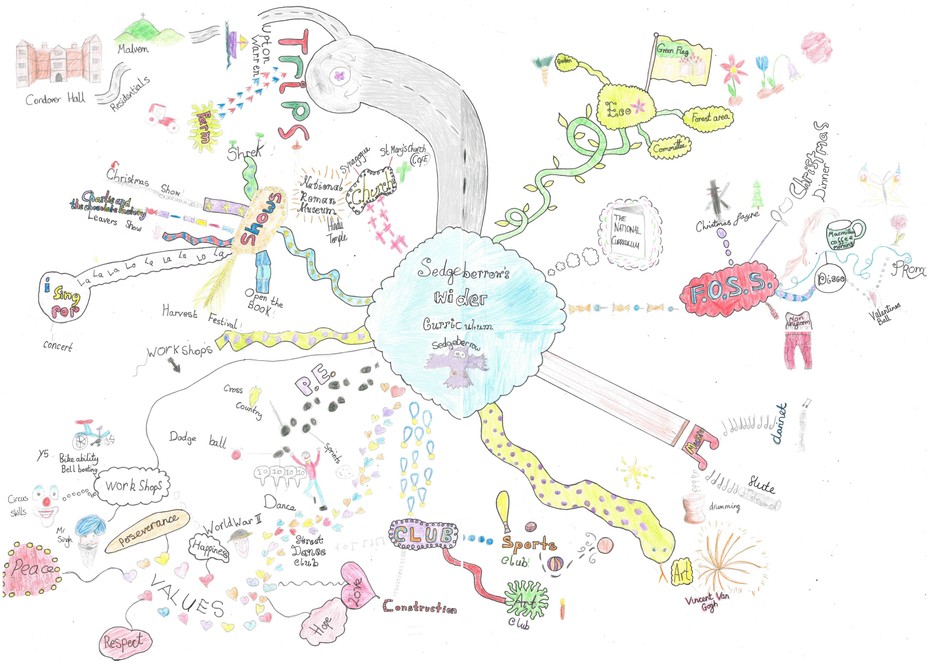 Sedgeberrow's
Wider
Curriculum
Sedgeberrow
Trips
Upton
Warren
Malvern
Condover Hall
Residentials
Farm
National
Roman
Museum
Synagogue
St Mary's Church
COFE
Church
Hindu
Temple
Shows
Shrek
Christmas Show
Charlie and
the chocolate factory
Leavers Show
La La La La La La La La
i
Sing
POP
concert
Open the
BOOK
Harvest Festival
WORKSHOPS
Workshops
Y5
Bike ability
Bell boating
Circus
skills
Mr
Singh
World War II
P.E.
Cross
country
Dodge ball
sprints
10 10 10 10
Dance
Street
Dance
club
VALUES
Perseverance
Happiness
Peace
Respect
Hope
Love
CLUB
Sports
club
Art
Club
Construction
Art
Vincent Van
Gogh
Music
clarinet
flute
drumming
F.O.S.S.
Christmas fayre
Christmas
Dinner
Macmillan
coffee
morning
Disco
PROM
Valentines
Ball
Non
uniform
THE
NATIONAL
CURRICULUM
Eco
Green Flag
Garden
Forest area
Committee